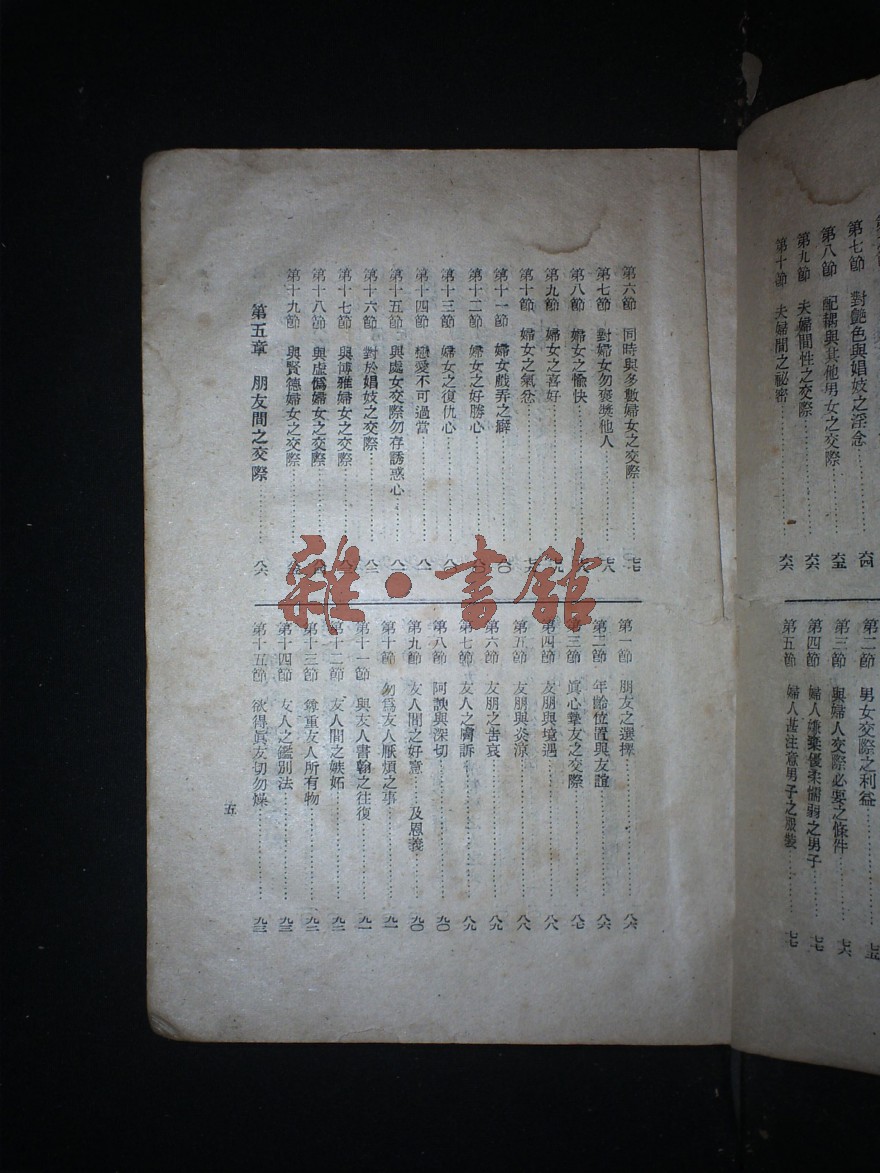 第七節 對艶色與娼妓之淫念 六四
第八節 配耦與其他男女之交際 六五
第九節 夫婦間性之交際 六六
第十節 夫婦間之祕密 六六
第二節 男女交際之利益 七五
第三節 與婦人交際必要之條件 七六
第四節 婦人嫌棄優柔懦弱之男子 七七
第五節 婦人甚注意男子之服裝 七七
第六節 同時與多數婦女之交際 七七
第七節 對婦女勿褒獎他人 七八
第八節 婦女之愉快
第九節 婦女之喜好
第十節 婦女之氣忿
第十一節 婦女戲弄之癖
第十二節 婦女之好勝心
第十三節 婦女之復仇心
第十四節 戀愛不可過當 八一
第十五節 與處女交際勿存誘惑心 八一
第十六節 對於娼妓之交際
第十七節 與博雅婦女之交際
第十八節 與虛僞婦女之交際
第十九節 與賢德婦女之交際
第五章 朋友間之交際 八六
第一節 朋友之選擇 八六
第二節 年齡位置與友誼 八六
第三節 眞心摯友之交際 八七
第四節 友朋與境遇 八八
第五節 友朋與炎涼 八八
第六節 友朋之苦哀 八九
第七節 友人之膚訴 八九
第八節 阿諛與深切 九〇
第九節 友人間之好意 及恩義 九〇
第十節 勿爲友人厭煩之事 九一
第十一節 與友人書翰之往復 九一
第十二節 友人間之嫉妬 九二
第十三節 尊重友人所有物 九二
第十四節 友人之鑑別法 九三
第十五節 欲得眞友切勿燥 九三
五
雜·書館